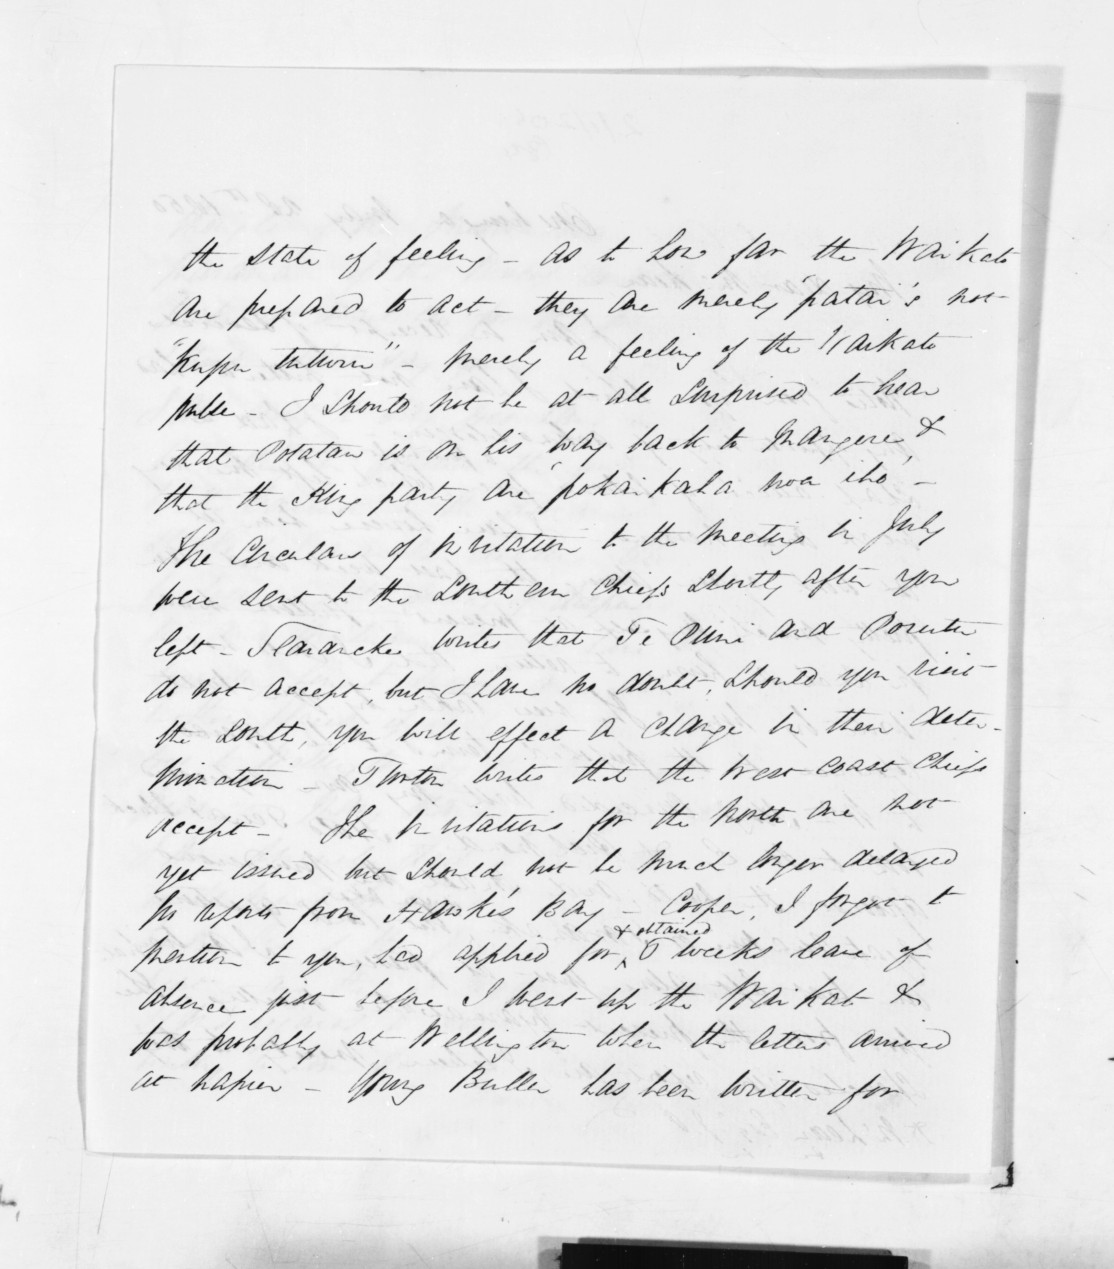 the state of feeling - as to how far the Waikato
are prepared to act - they are merely "patai"s not
"kupu tuturu" - merely a feeling of the Waikato
pulse - I should not be at all surprised to hear
that Potatau is on his way back to Mangere &
that the King party are "pokaikaha noa iho" -
The Circulars of invitation to the meeting in July
were sent to the Southern Chiefs shortly after you
left - writes that Te Puni and Porutu
do not accept, but I have no doubt, should you visit
the South, you will effect a change in their deter-
mination - Turton writes that the West Coast Chiefs
accept - The invitations for the North are not
yet issued but should not be much longer delayed
No reports from Hawke's Bay - Cooper, I forgot to
& obtained
mention to you, had applied for, weeks leave of
absence just before I went up the Waikato &
was probably at Wellington when the letters arrived
at Napier - Young Buller has been written for